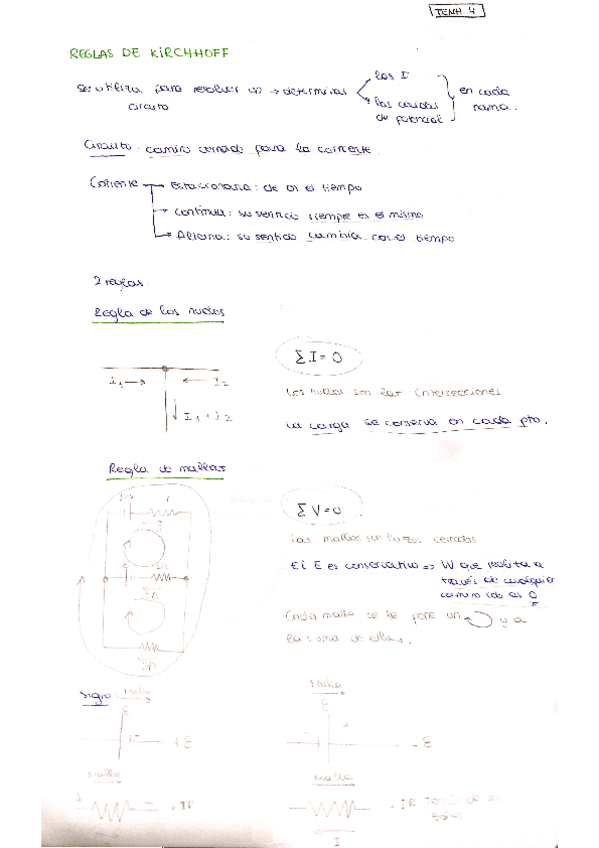 TEMA 4
REGLAS DE KIRCHHOFF
Se utiliza para resolver un → determinar
circuito
las I
las caidas
de potencial
en cada
rama.
Circuito: camino cerrado para la corriente
Corriente → Estacionaria: de en el tiempo
→ continua: su sentido siempre es el mismo
→ Alterna: su sentido cambia con el tiempo
2 reglas:
Regla de los nudos
Σ I = 0
I₁ → ← I₂
I₁ + I₂
Los nudos son las intersecciones
La carga se conserva en cada pto.
Regla de mallas
Σ V = 0
Las mallas son lazos cerrados
El E es conservativo => W que realiza a
través de cualquier
camino cdo es 0
Cada malla se le pone un y a
la suma de ellas.
Signo: Malla
Malla
ε
ε
- + ε
- +
- ε
Malla
Malla
+ - + IR
- IR
I